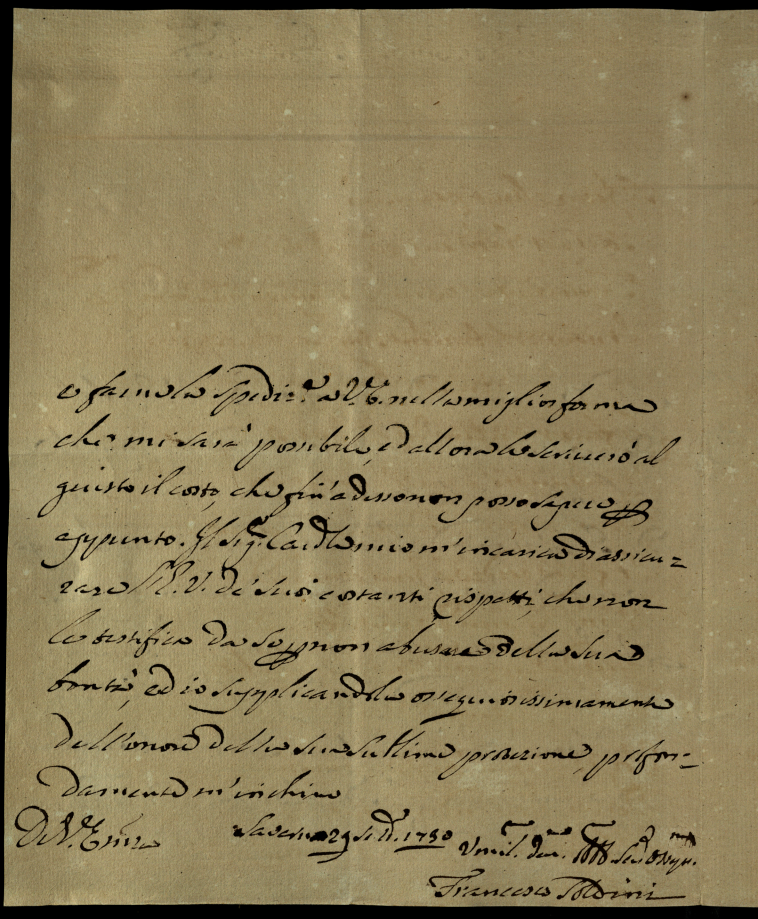 e farne la spediz.e a V.E. nella miglior forma
che mi sarà possibile, ed allora le scriverò al
giusto il costo, che fin' adesso non posso sapere p
appunto. Il Sig.r Cardle mio m'incarica di assicu=
rare l'E.V. de' suoi costanti rispetti, che non
le testifica da se p non abusare della sua
bontà, ed io supplicandola ossequiosissimamente
dell'onore della sua sublime protezione, profon=
damente m'inchino
Di V. Emza
29 1750 Umil. Dev.
Francesco